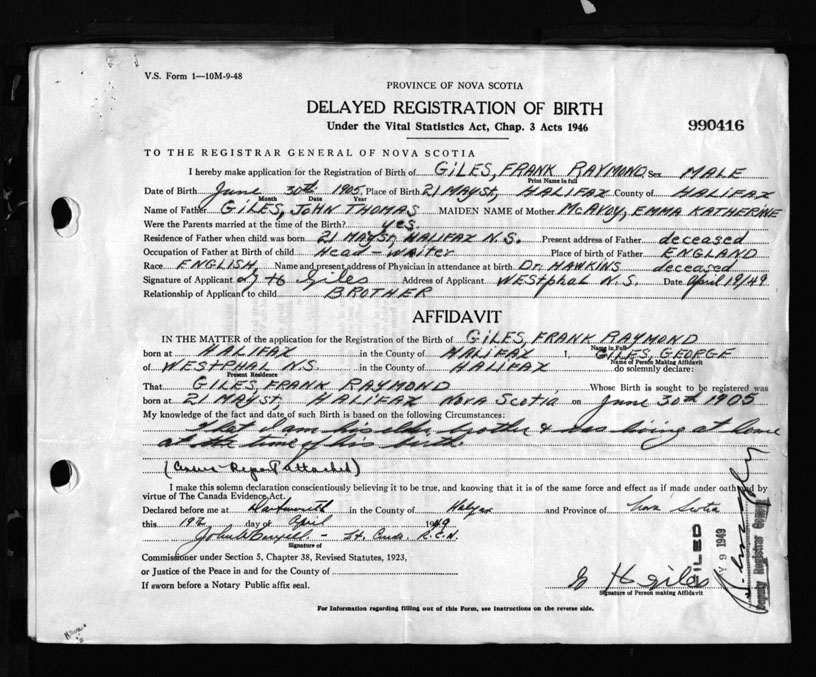 V.S. Form 1—10M-9-48
PROVINCE OF NOVA SCOTIA
DELAYED REGISTRATION OF BIRTH
Under the Vital Statistics Act, Chap. 3 Acts 1946
990416
TO THE REGISTRAR GENERAL OF NOVA SCOTIA
I hereby make application for the Registration of Birth of GILES, FRANK RAYMOND Sex MALE
Print Name in full
Date of Birth June 30th 1905, Place of Birth 21 MAY St, HALIFAX County of HALIFAX
Month Date Year
Name of Father GILES, JOHN THOMAS MAIDEN NAME of Mother McAVOY, EMMA KATHERINE
Were the Parents married at the time of the Birth? yes
Residence of Father when child was born 21 MAY St, HALIFAX N.S. Present address of Father deceased
Occupation of Father at Birth of child Head-Waiter Place of birth of Father ENGLAND
Race ENGLISH Name and present address of Physician in attendance at birth Dr. HAWKINS deceased
Signature of Applicant G H Giles Address of Applicant WESTPHAL N.S. Date April 19/49
Relationship of Applicant to child BROTHER
AFFIDAVIT
IN THE MATTER of the application for the Registration of the Birth of GILES, FRANK RAYMOND
Name in Full
born at HALIFAX in the County of HALIFAX I, GILES, GEORGE
Name of Person Making Affidavit
of WESTPHAL N.S. in the County of HALIFAX do solemnly declare:
Present Residence
That GILES, FRANK RAYMOND, Whose Birth is sought to be registered was
born at 21 MAY St HALIFAX NOVA SCOTIA on June 30th 1905
My knowledge of the fact and date of such Birth is based on the following Circumstances:
that I am his elder brother & was living at home
at the time of his birth
(Census Report attached)
I make this solemn declaration conscientiously believing it to be true, and knowing that it is of the same force and effect as if made under oath and by
virtue of The Canada Evidence Act.
Declared before me at Dartmouth in the County of Halifax and Province of Nova Scotia
this 19th day of April 1949
John W - Lt. Cmdr. R.C.N.
Signature of
Commissioner under Section 5, Chapter 38, Revised Statutes, 1923,
or Justice of the Peace in and for the County of
If sworn before a Notary Public affix seal.
G H Giles
Signature of Person making Affidavit
FILED
9 1949
Deputy Registrar General
For Information regarding filling out of this Form, see Instructions on the reverse side.